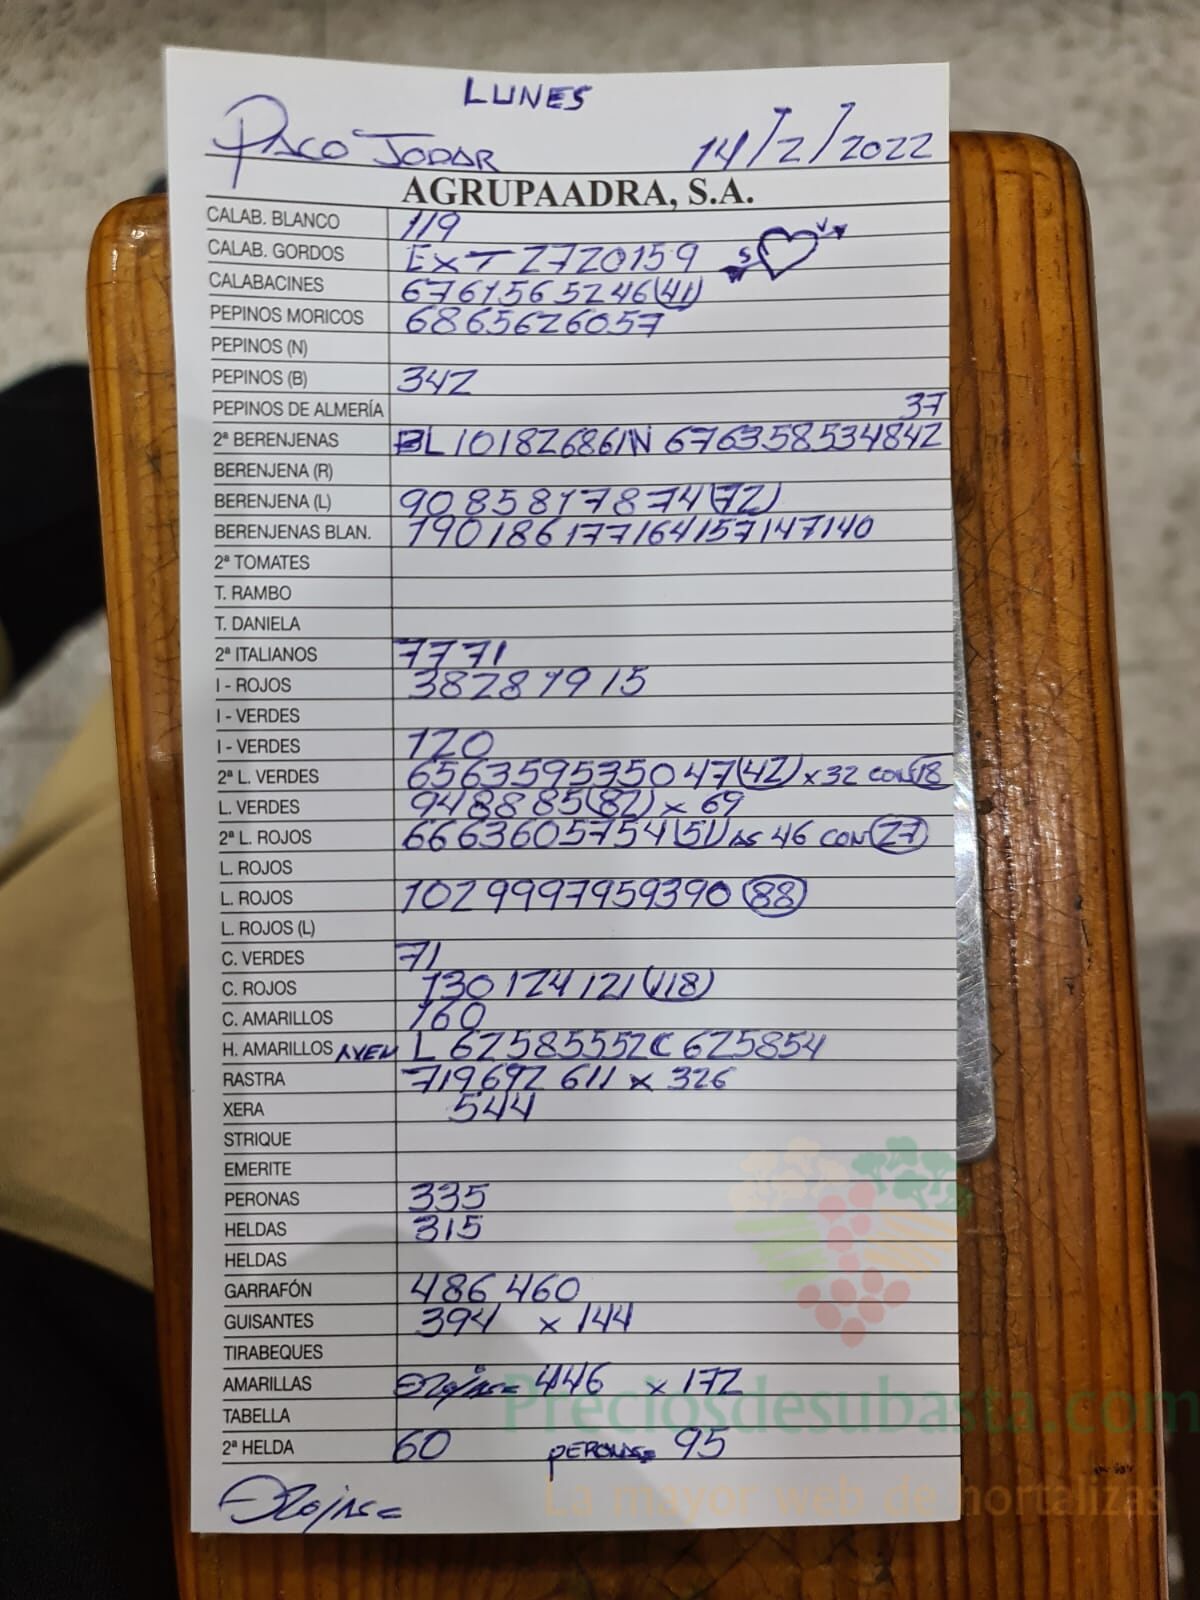 LUNES
PACO JODAR 14/2/2022
AGRUPAADRA, S.A.
CALAB. BLANCO 119
CALAB. GORDOS EXT 2720159 S V
CALABACINES 6761565246(41)
PEPINOS MORICOS 6865626057
PEPINOS (N)
PEPINOS (B) 342
PEPINOS DE ALMERÍA 37
2ª BERENJENAS BL 101826861N 676358534842
BERENJENA (R)
BERENJENA (L) 9085817874(72)
BERENJENAS BLAN. 190186177164157147140
2ª TOMATES
T. RAMBO
T. DANIELA
2ª ITALIANOS 7771
I - ROJOS 38281915
I - VERDES
I - VERDES 120
2ª L. VERDES 656359535047(42) x 32 CON 18
L. VERDES 948885(82) x 69
2ª L. ROJOS 6663605754(51) AS 46 CON 27
L. ROJOS
L. ROJOS 1029997959390 88
L. ROJOS (L)
C. VERDES 71
C. ROJOS 130124121(118)
C. AMARILLOS 160
H. AMARILLOS L 62585552C 625854
RASTRA 719692 611 x 326
XERA 544
STRIQUE
EMERITE
PERONAS 335
HELDAS 315
HELDAS
GARRAFÓN 486 460
GUISANTES 394 x 144
TIRABEQUES
AMARILLAS 446 x 172
TABELLA
Preciosdesubasta.com
2ª HELDA 60 PERONAS 95
La mayor web de hortalizas